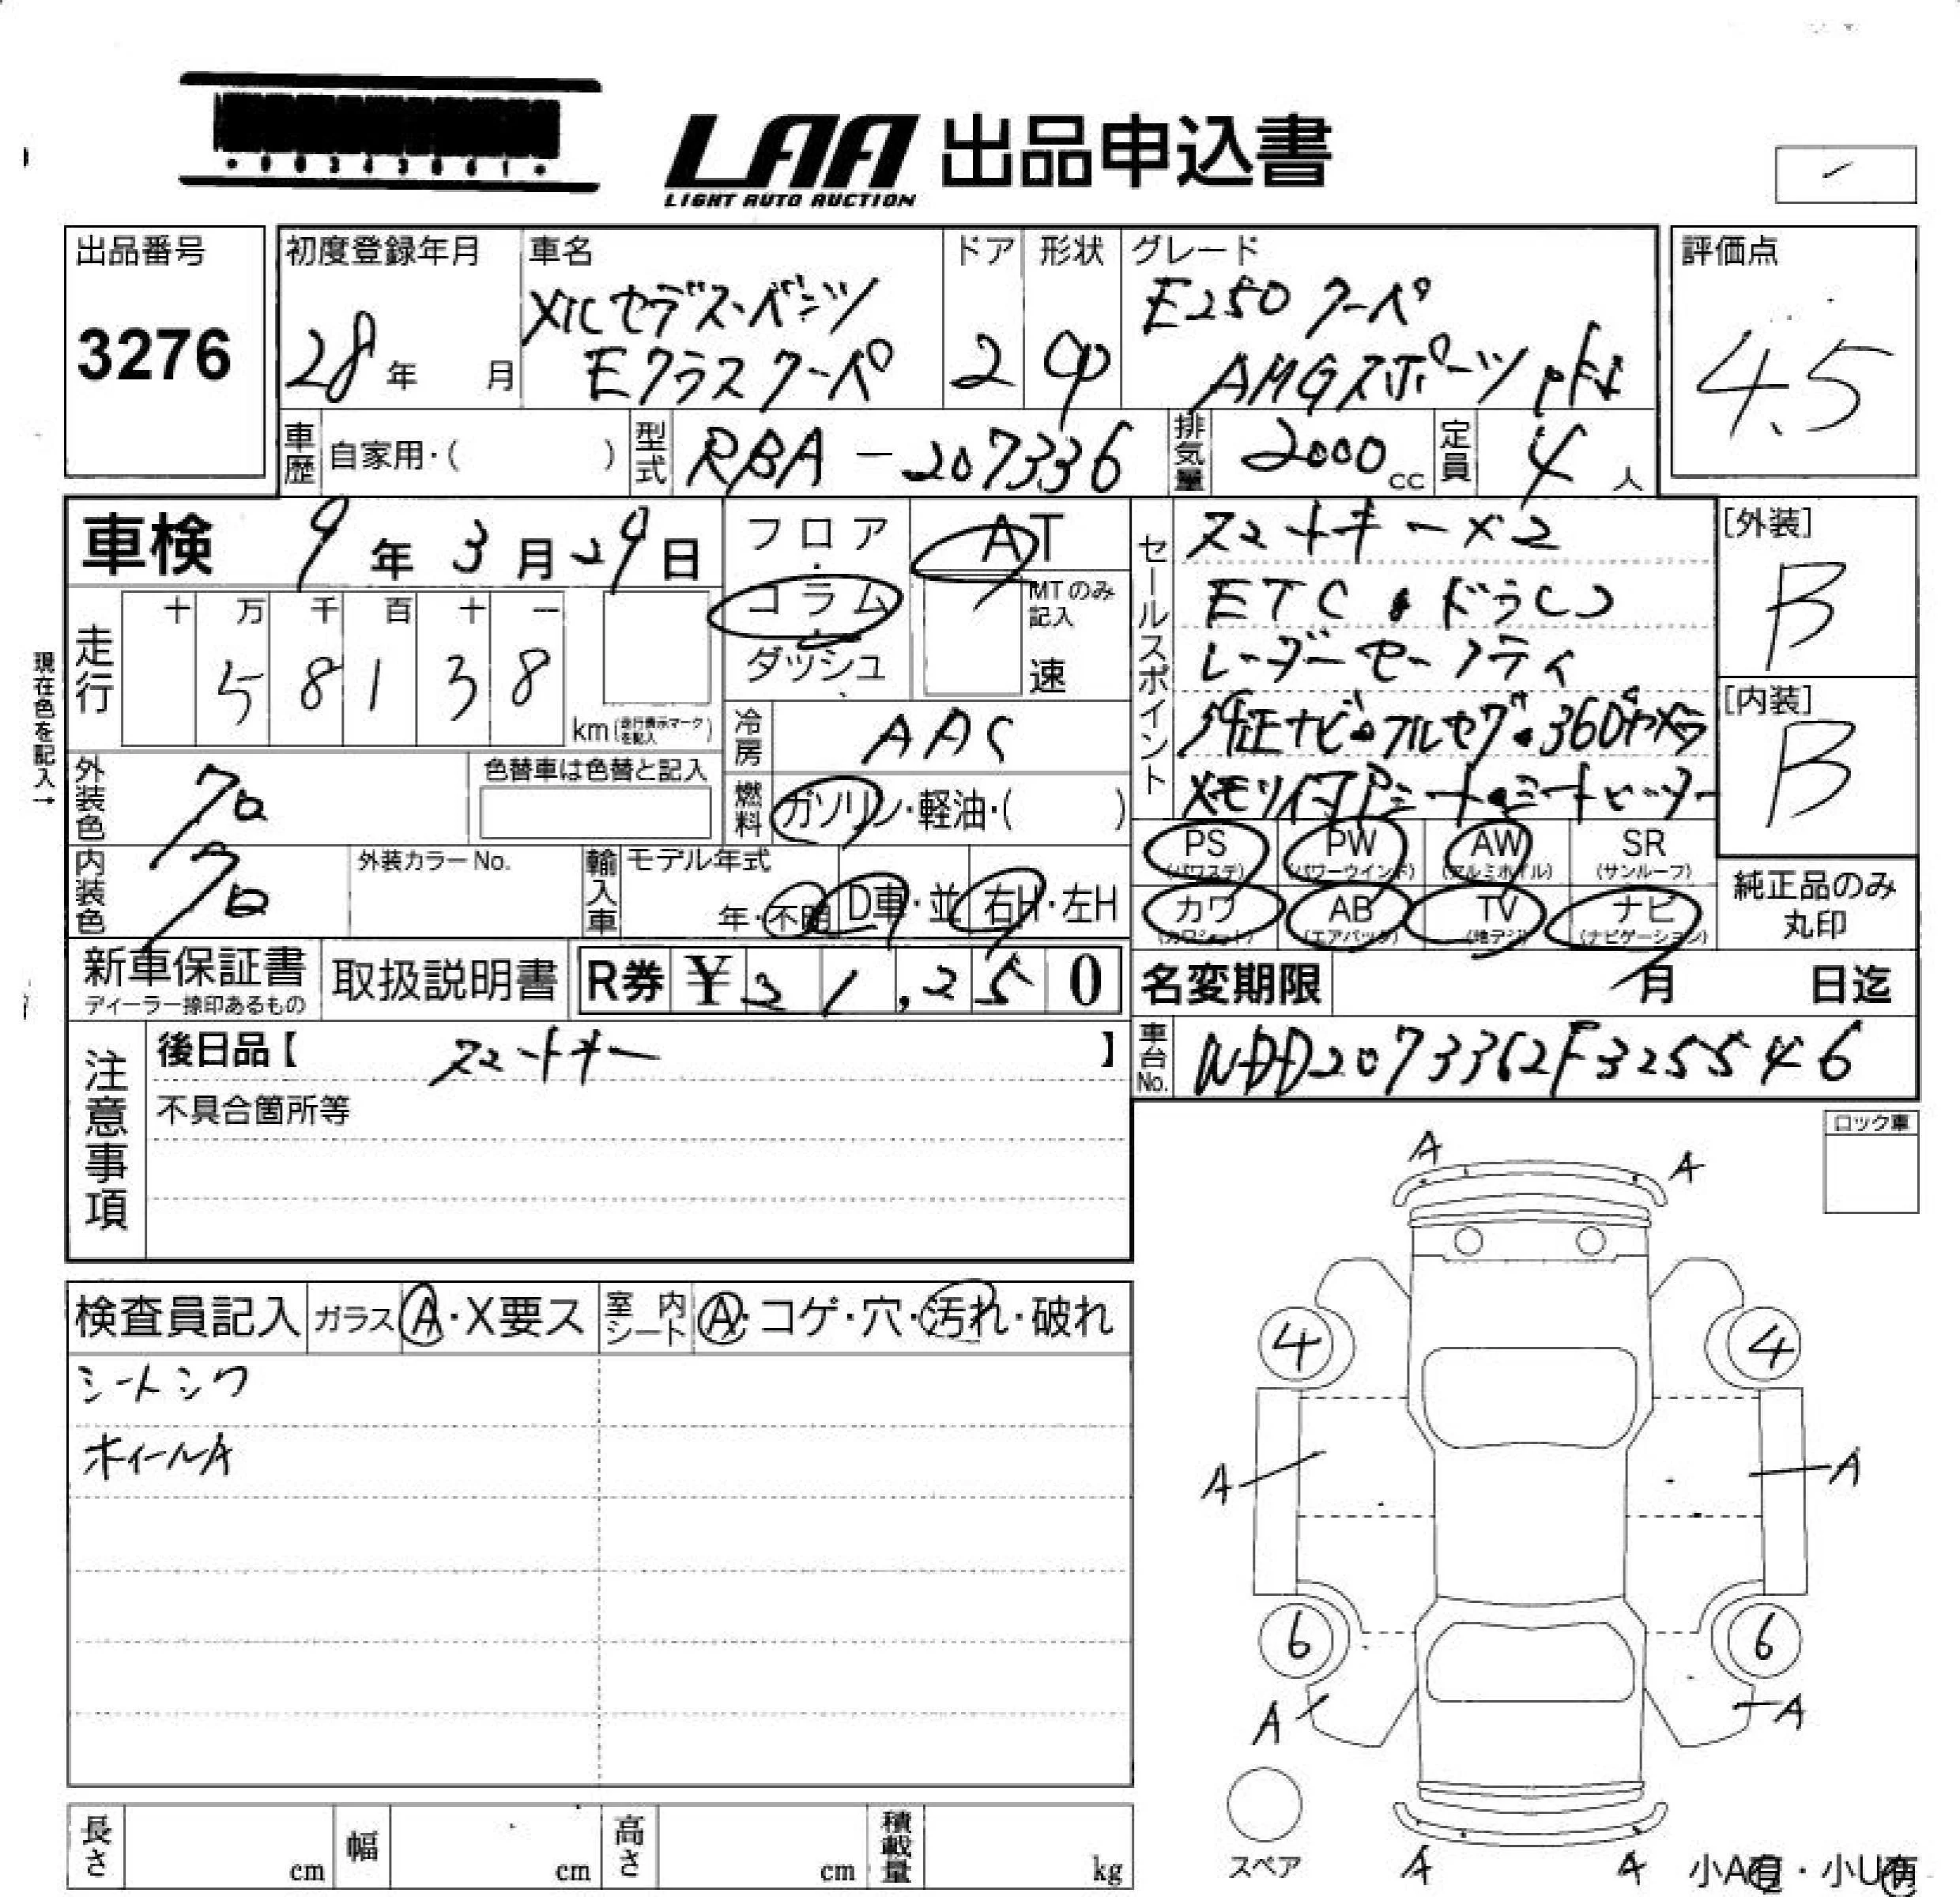 LAA 出品申込書
LIGHT AUTO AUCTION
出品番号
3276
初度登録年月
28年 月
車名
メルセデス・ベンツ
Eクラスクーペ
ドア
2
形状
CP
グレード
E250 クーペ
AMGスポーツ
評価点
4.5
車歴 自家用・( )
型式 RBA-207336
排気量 2000cc
定員 4人
車検 9年3月29日
フロア・コラム・ダッシュ
AT
MTのみ記入
速
現在色を記入→
走行
十 万 千 百 十 一
5 8 1 3 8
km(走行表示マークを記入)
冷房 AAC
燃料 ガソリン・軽油・( )
外装色 クロ
色替車は色替と記入
内装色 クロ
外装カラーNo.
輸入車 モデル年式
年・不明 D車・並 右H・左H
セールスポイント
スマートキー×2
ETC・ドラレコ
レーダーセーフティ
純正ナビ・フルセグ・360°カメラ
メモリ付Pシート・シートヒーター
[外装]
B
[内装]
B
PS (パワステ)
PW (パワーウインド)
AW (アルミホイル)
SR (サンルーフ)
カワ (カワシート)
AB (エアバック)
TV (地デジ)
ナビ (ナビゲーション)
純正品のみ丸印
新車保証書
ディーラー捺印あるもの
取扱説明書
R券 ¥21,250
名変期限 月 日迄
車台No. WDD2073362F325546
注意事項
後日品【 スマートキー 】
不具合箇所等
ロック車
検査員記入
ガラス A・X要ス
室内シート A・コゲ・穴・汚れ・破れ
シートシワ
ホイールA
A A
4 4
A A
6 6
A A
スペア
A A
小A有・小U有
長さ cm
幅 cm
高さ cm
積載量 kg